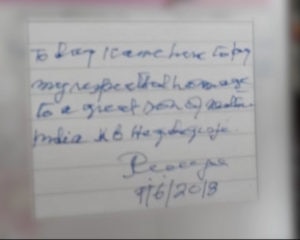 Today I came here to pay
my respectful homage
to a great son of mother
India K B Hedgewar
9/6/2018